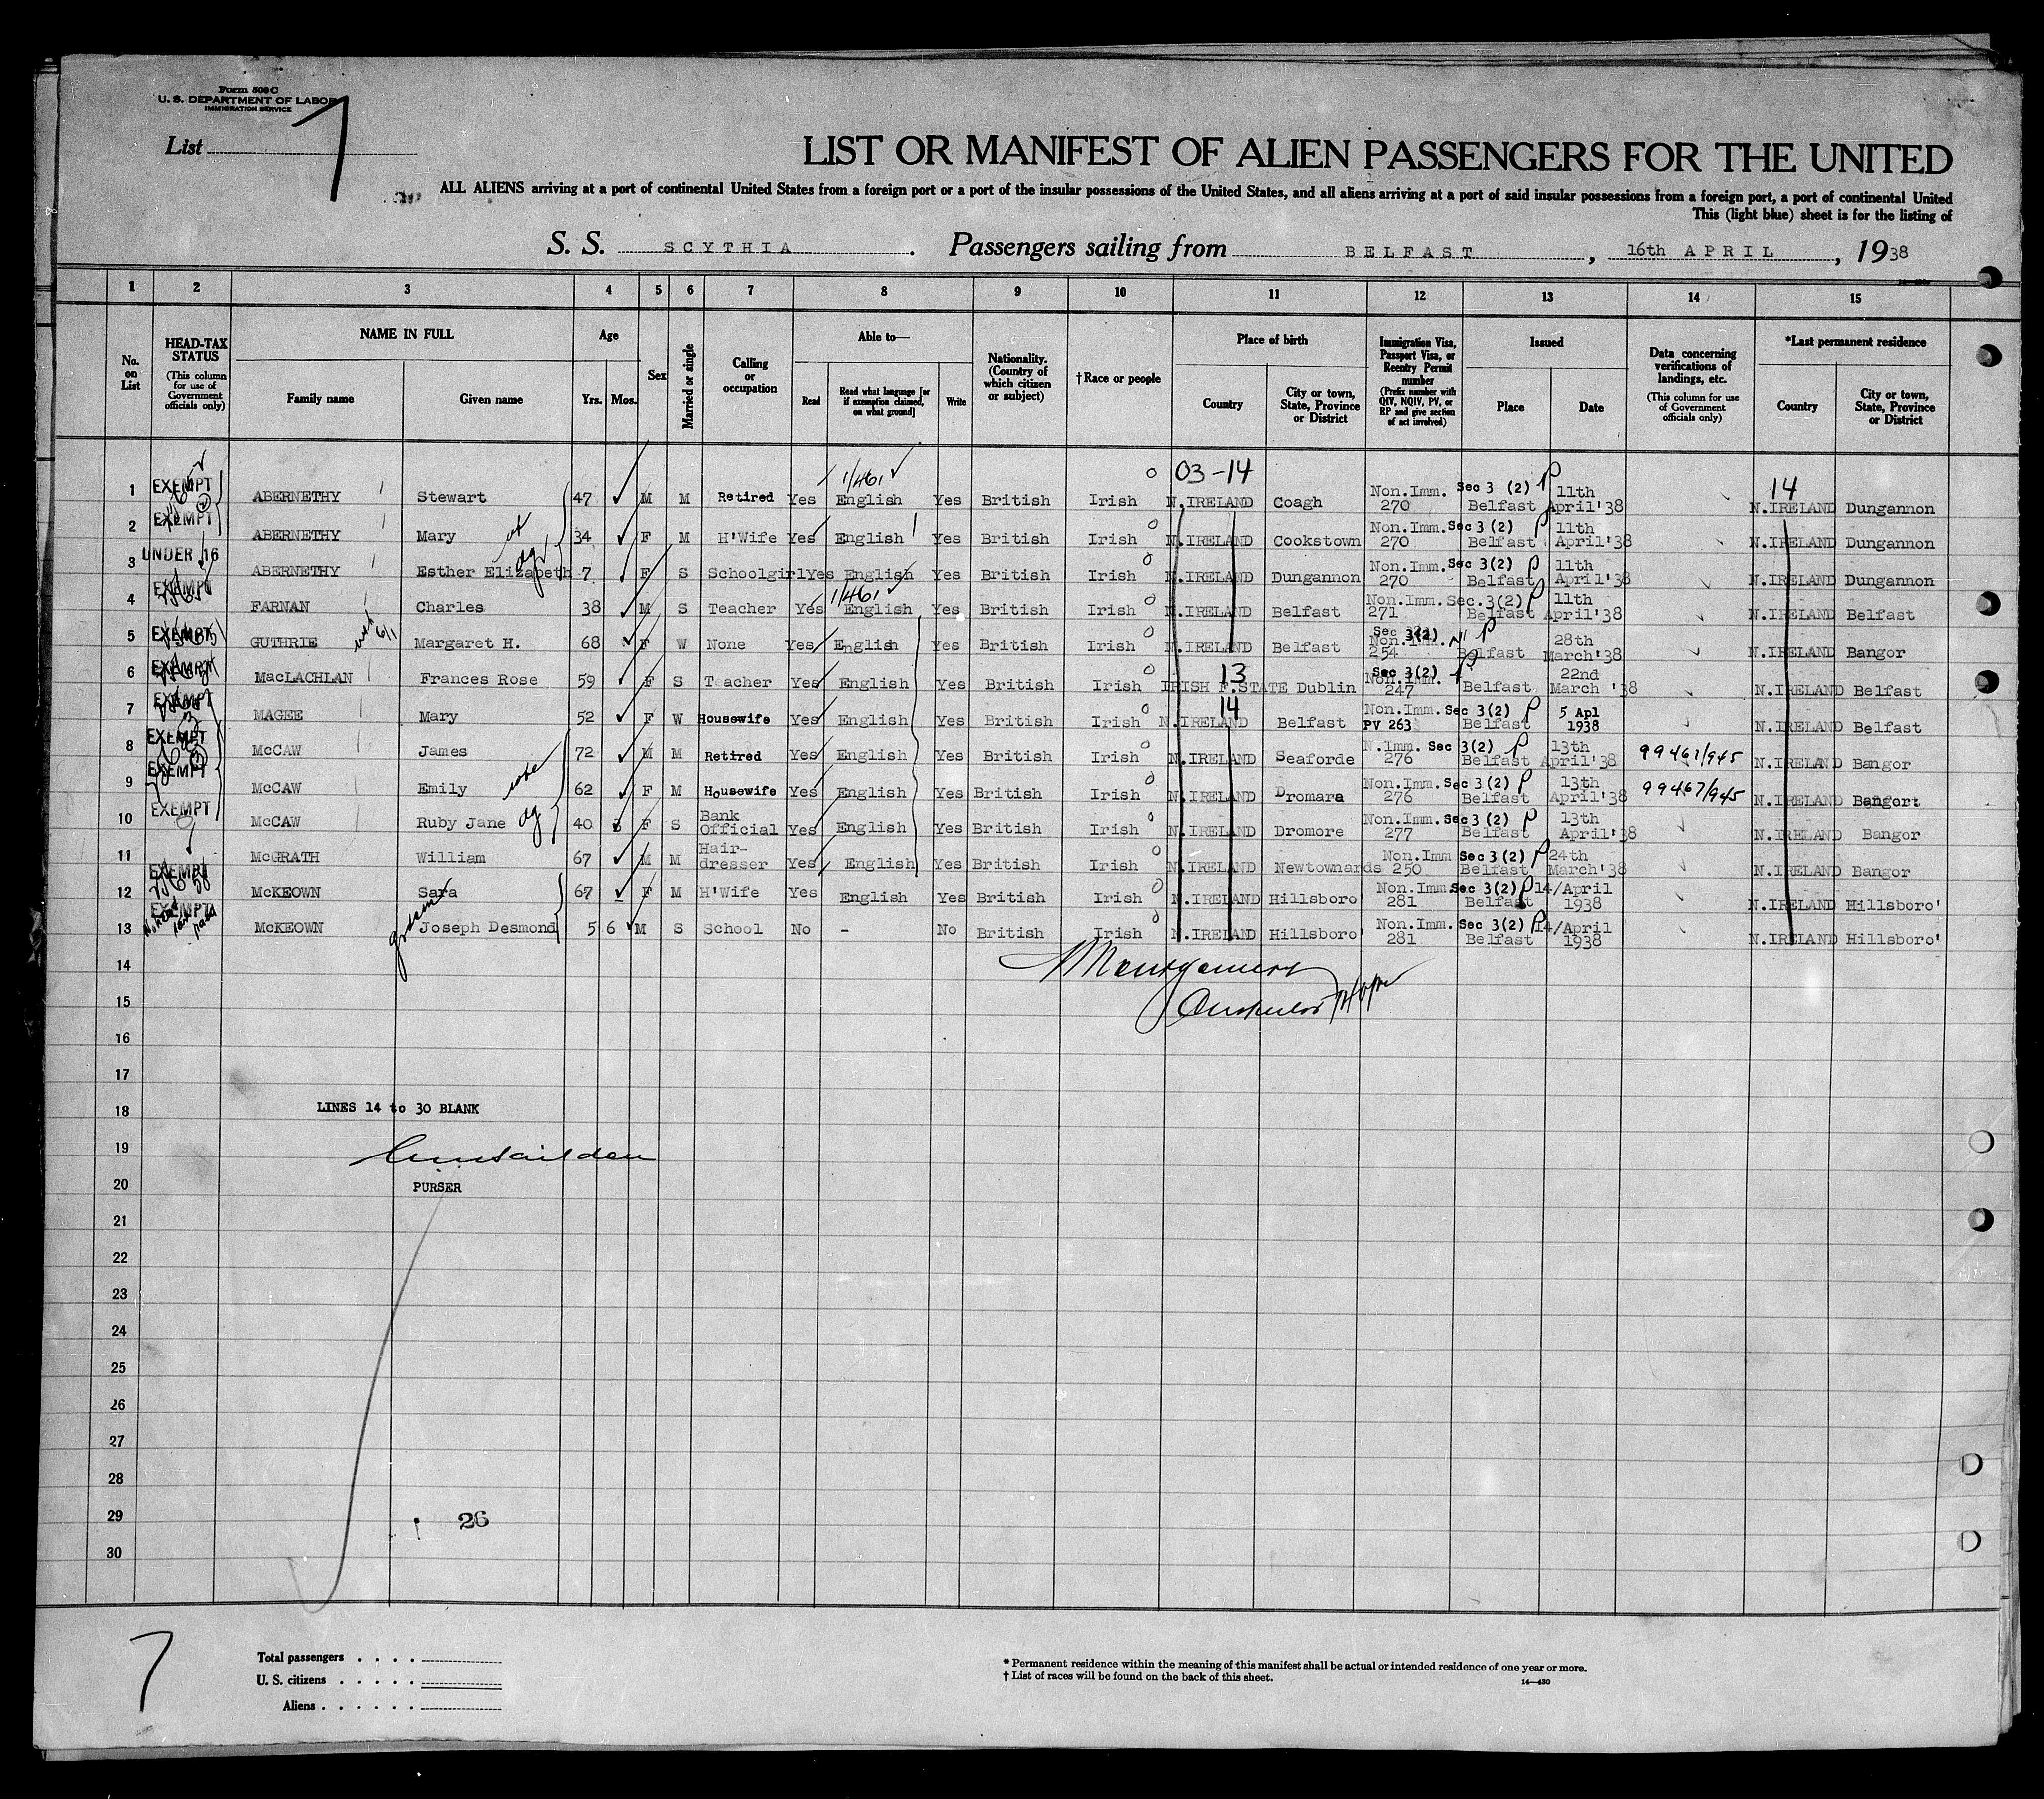 Form 500 C
U. S. DEPARTMENT OF LABOR
IMMIGRATION SERVICE
List 7
LIST OR MANIFEST OF ALIEN PASSENGERS FOR THE UNITED
ALL ALIENS arriving at a port of continental United States from a foreign port or a port of the insular possessions of the United States, and all aliens arriving at a port of said insular possessions from a foreign port, a port of continental United
This (light blue) sheet is for the listing of
S. S. SCYTHIA. Passengers sailing from BELFAST, 16th APRIL, 1938
1 2 3 4 5 6 7 8 9 10 11 12 13 14 15
No. on List
HEAD-TAX STATUS (This column for use of Government officials only)
NAME IN FULL Family name Given name
Age Yrs. Mos.
Sex
Married or single
Calling or occupation
Able to— Read Read what language [or if exemption claimed, on what ground] Write
Nationality. (Country of which citizen or subject)
†Race or people
Place of birth Country City or town, State, Province or District
Immigration Visa, Passport Visa, or Reentry Permit number (Prefix number with QIV, NQIV, PV, or RP and give section of act involved)
Issued Place Date
Data concerning verifications of landings, etc. (This column for use of Government officials only)
*Last permanent residence Country City or town, State, Province or District
1/461 03-14 14
1 EXEMPT ABERNETHY Stewart 47 M M Retired Yes English Yes British Irish N.IRELAND Coagh Non.Imm. Sec 3 (2) 270 Belfast 11th April'38 N.IRELAND Dungannon
2 EXEMPT ABERNETHY Mary 34 F M H'Wife Yes English Yes British Irish N.IRELAND Cookstown Non.Imm. Sec 3 (2) 270 Belfast 11th April'38 N.IRELAND Dungannon
3 UNDER 16 ABERNETHY Esther Elizabeth 7 F S Schoolgirl Yes English Yes British Irish N.IRELAND Dungannon Non.Imm. Sec 3 (2) 270 Belfast 11th April'38 N.IRELAND Dungannon
1/461
4 EXEMPT FARNAN Charles 38 M S Teacher Yes English Yes British Irish N.IRELAND Belfast Non.Imm. Sec. 3 (2) 271 Belfast 11th April'38 N.IRELAND Belfast
5 EXEMPT GUTHRIE Margaret H. 68 F W None Yes English Yes British Irish N.IRELAND Belfast Sec 3(2) Non.Imm. 254 Belfast 28th March'38 N.IRELAND Bangor
6 EXEMPT MacLACHLAN Frances Rose 59 F S Teacher Yes English Yes British Irish 13 IRISH F.STATE Dublin Sec 3(2) Non.Imm. 247 Belfast 22nd March '38 N.IRELAND Belfast
7 EXEMPT MAGEE Mary 52 F W Housewife Yes English Yes British Irish 14 N.IRELAND Belfast Non.Imm. Sec 3(2) PV 263 Belfast 5 Apl 1938 N.IRELAND Belfast
8 EXEMPT McCAW James 72 M M Retired Yes English Yes British Irish N.IRELAND Seaforde N.Imm. Sec 3(2) 276 Belfast 13th April'38 99467/945 N.IRELAND Bangor
9 EXEMPT McCAW Emily 62 F M Housewife Yes English Yes British Irish N.IRELAND Dromara Non.Imm. Sec 3(2) 276 Belfast 13th April'38 99467/945 N.IRELAND Bangor
10 EXEMPT McCAW Ruby Jane 40 F S Bank Official Yes English Yes British Irish N.IRELAND Dromore Non.Imm. Sec 3(2) 277 Belfast 13th April'38 N.IRELAND Bangor
11 McGRATH William 67 M M Hair-dresser Yes English Yes British Irish N.IRELAND Newtownards Non.Imm Sec 3(2) 250 Belfast 24th March'38 N.IRELAND Bangor
12 EXEMPT McKEOWN Sara 67 F M H'Wife Yes English Yes British Irish N.IRELAND Hillsboro Non.Imm Sec 3(2) 281 Belfast 14/April 1938 N.IRELAND Hillsboro'
13 EXEMPT McKEOWN Joseph Desmond 5 6 M S School No - No British Irish N.IRELAND Hillsboro' Non.Imm. Sec 3(2) 281 Belfast 14/April 1938 N.IRELAND Hillsboro'
14
15
16
17
18 LINES 14 to 30 BLANK
19
20 PURSER
21
22
23
24
25
26
27
28
29 26
30
7
Total passengers . . . .
U. S. citizens . . . . .
Aliens . . . . . .
* Permanent residence within the meaning of this manifest shall be actual or intended residence of one year or more.
† List of races will be found on the back of this sheet.
14—430